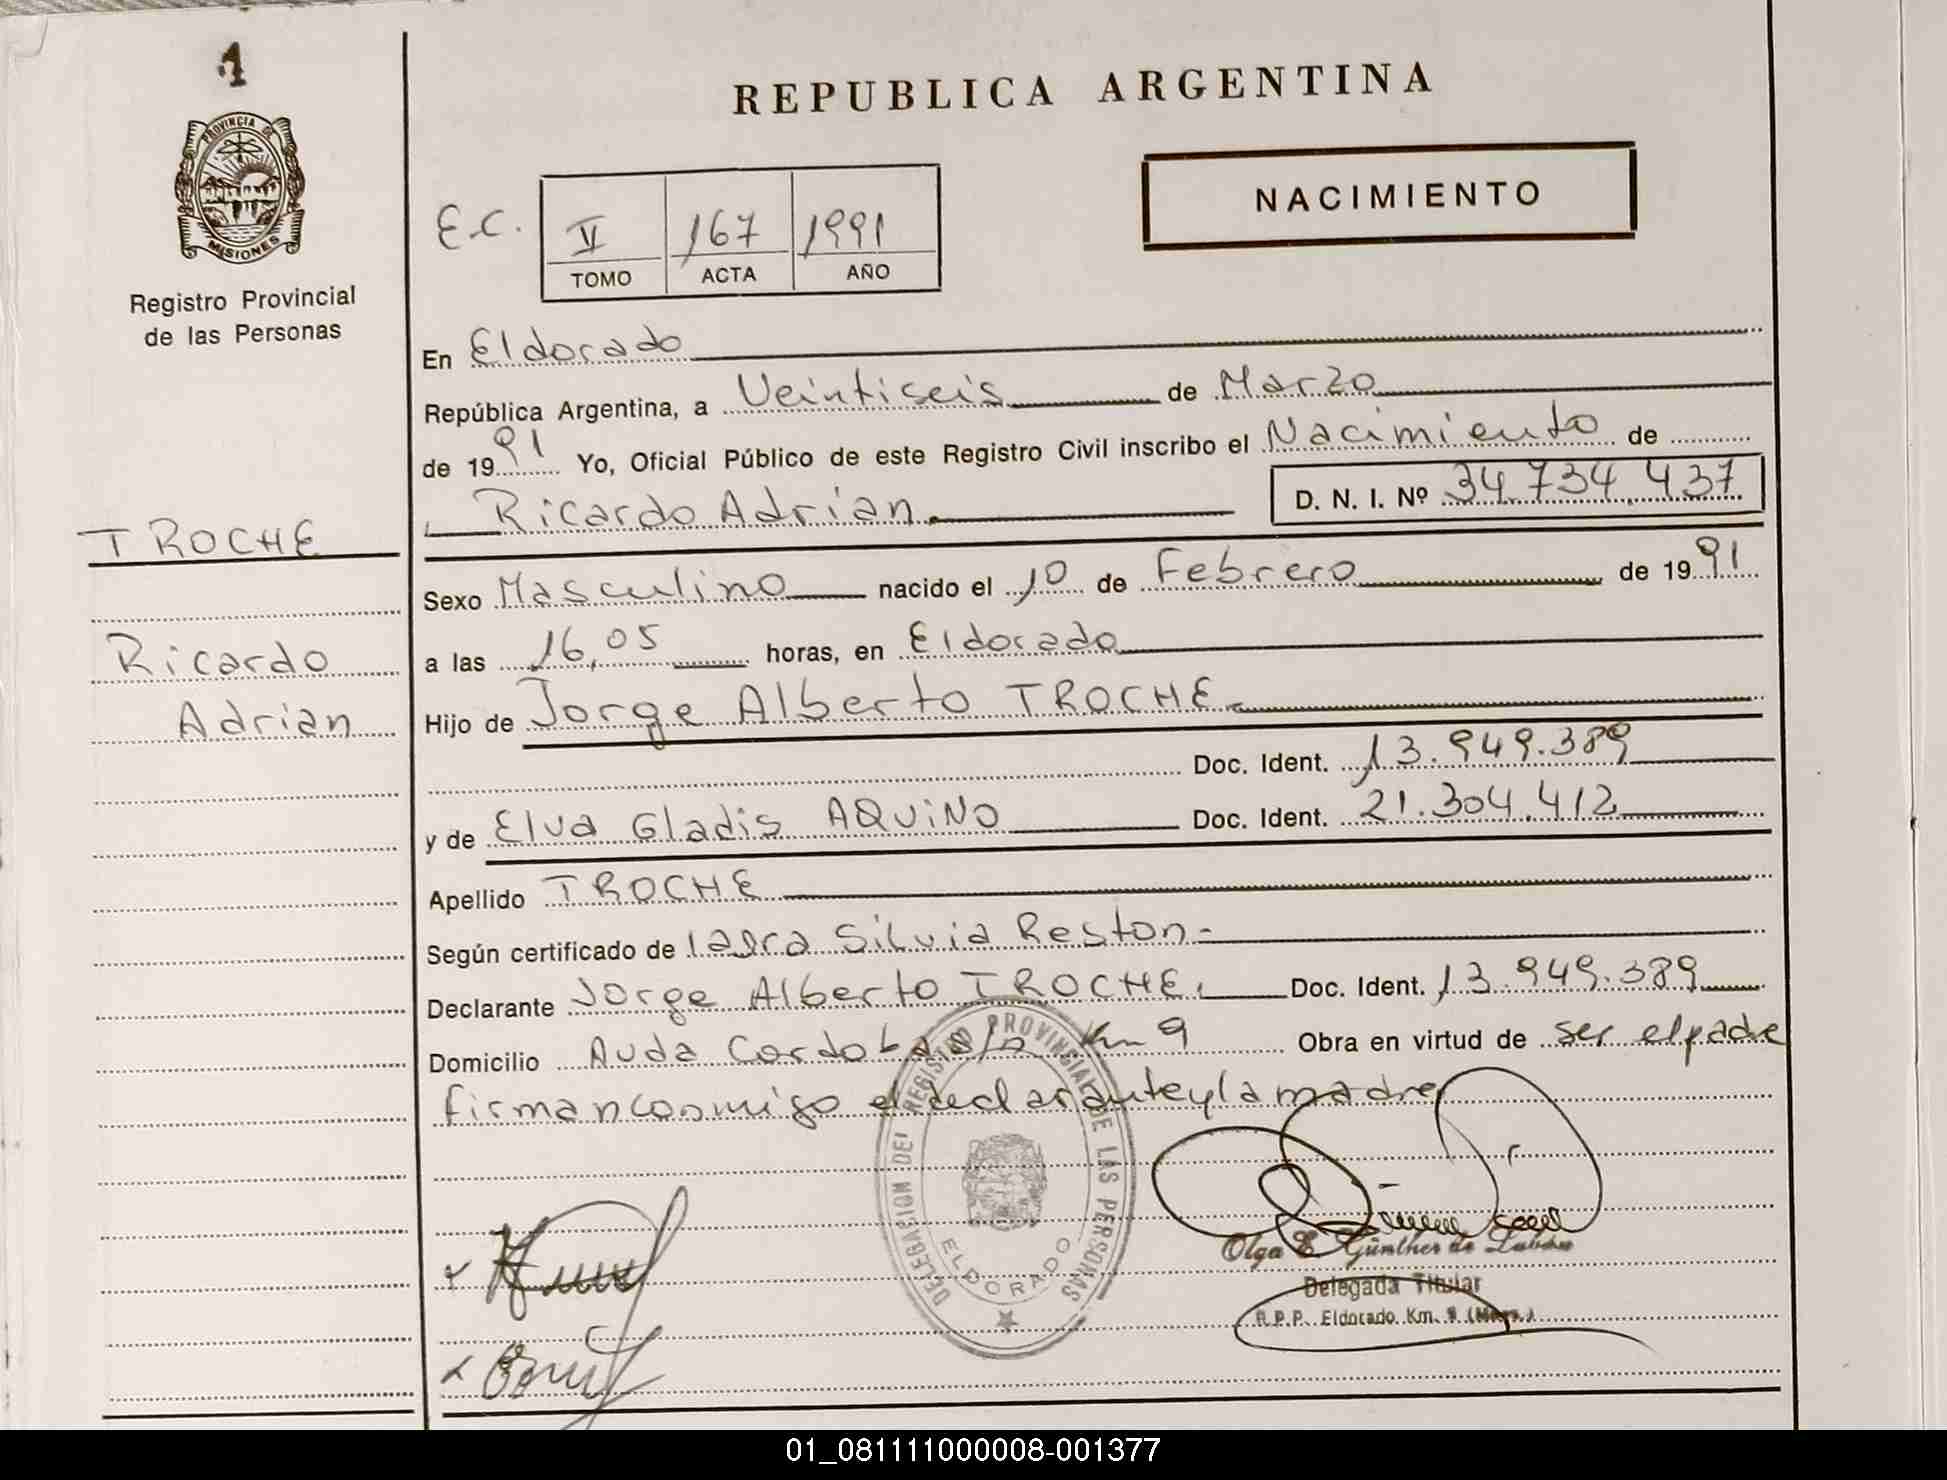 1
PROVINCIA DE
MISIONES
Registro Provincial
de las Personas
TROCHE
Ricardo
Adrian
REPUBLICA ARGENTINA
NACIMIENTO
E.C.
II 167 1991
TOMO ACTA AÑO
En Eldorado
República Argentina, a Veintiseis de Marzo
de 1991 Yo, Oficial Público de este Registro Civil inscribo el Nacimiento de
Ricardo Adrian D. N. I. Nº 34.734.437
Sexo Masculino nacido el 10 de Febrero de 1991
a las 16,05 horas, en Eldorado
Hijo de Jorge Alberto TROCHE
Doc. Ident. 13.949.389
y de Elva Gladis AQUINO Doc. Ident. 21.304.412
Apellido TROCHE
Según certificado de Silvia Reston
Declarante Jorge Alberto TROCHE Doc. Ident. 13.949.389
Domicilio Avda Cordoba s/n Km 9 Obra en virtud de ser el padre
firman conmigo el declarante y la madre
DELEGACION DEL REGISTRO PROVINCIAL DE LAS PERSONAS
ELDORADO
Olga E. Günther de
Delegada Titular
R.P.P. Eldorado Km. 9 (Mnes.)
01_081111000008-001377